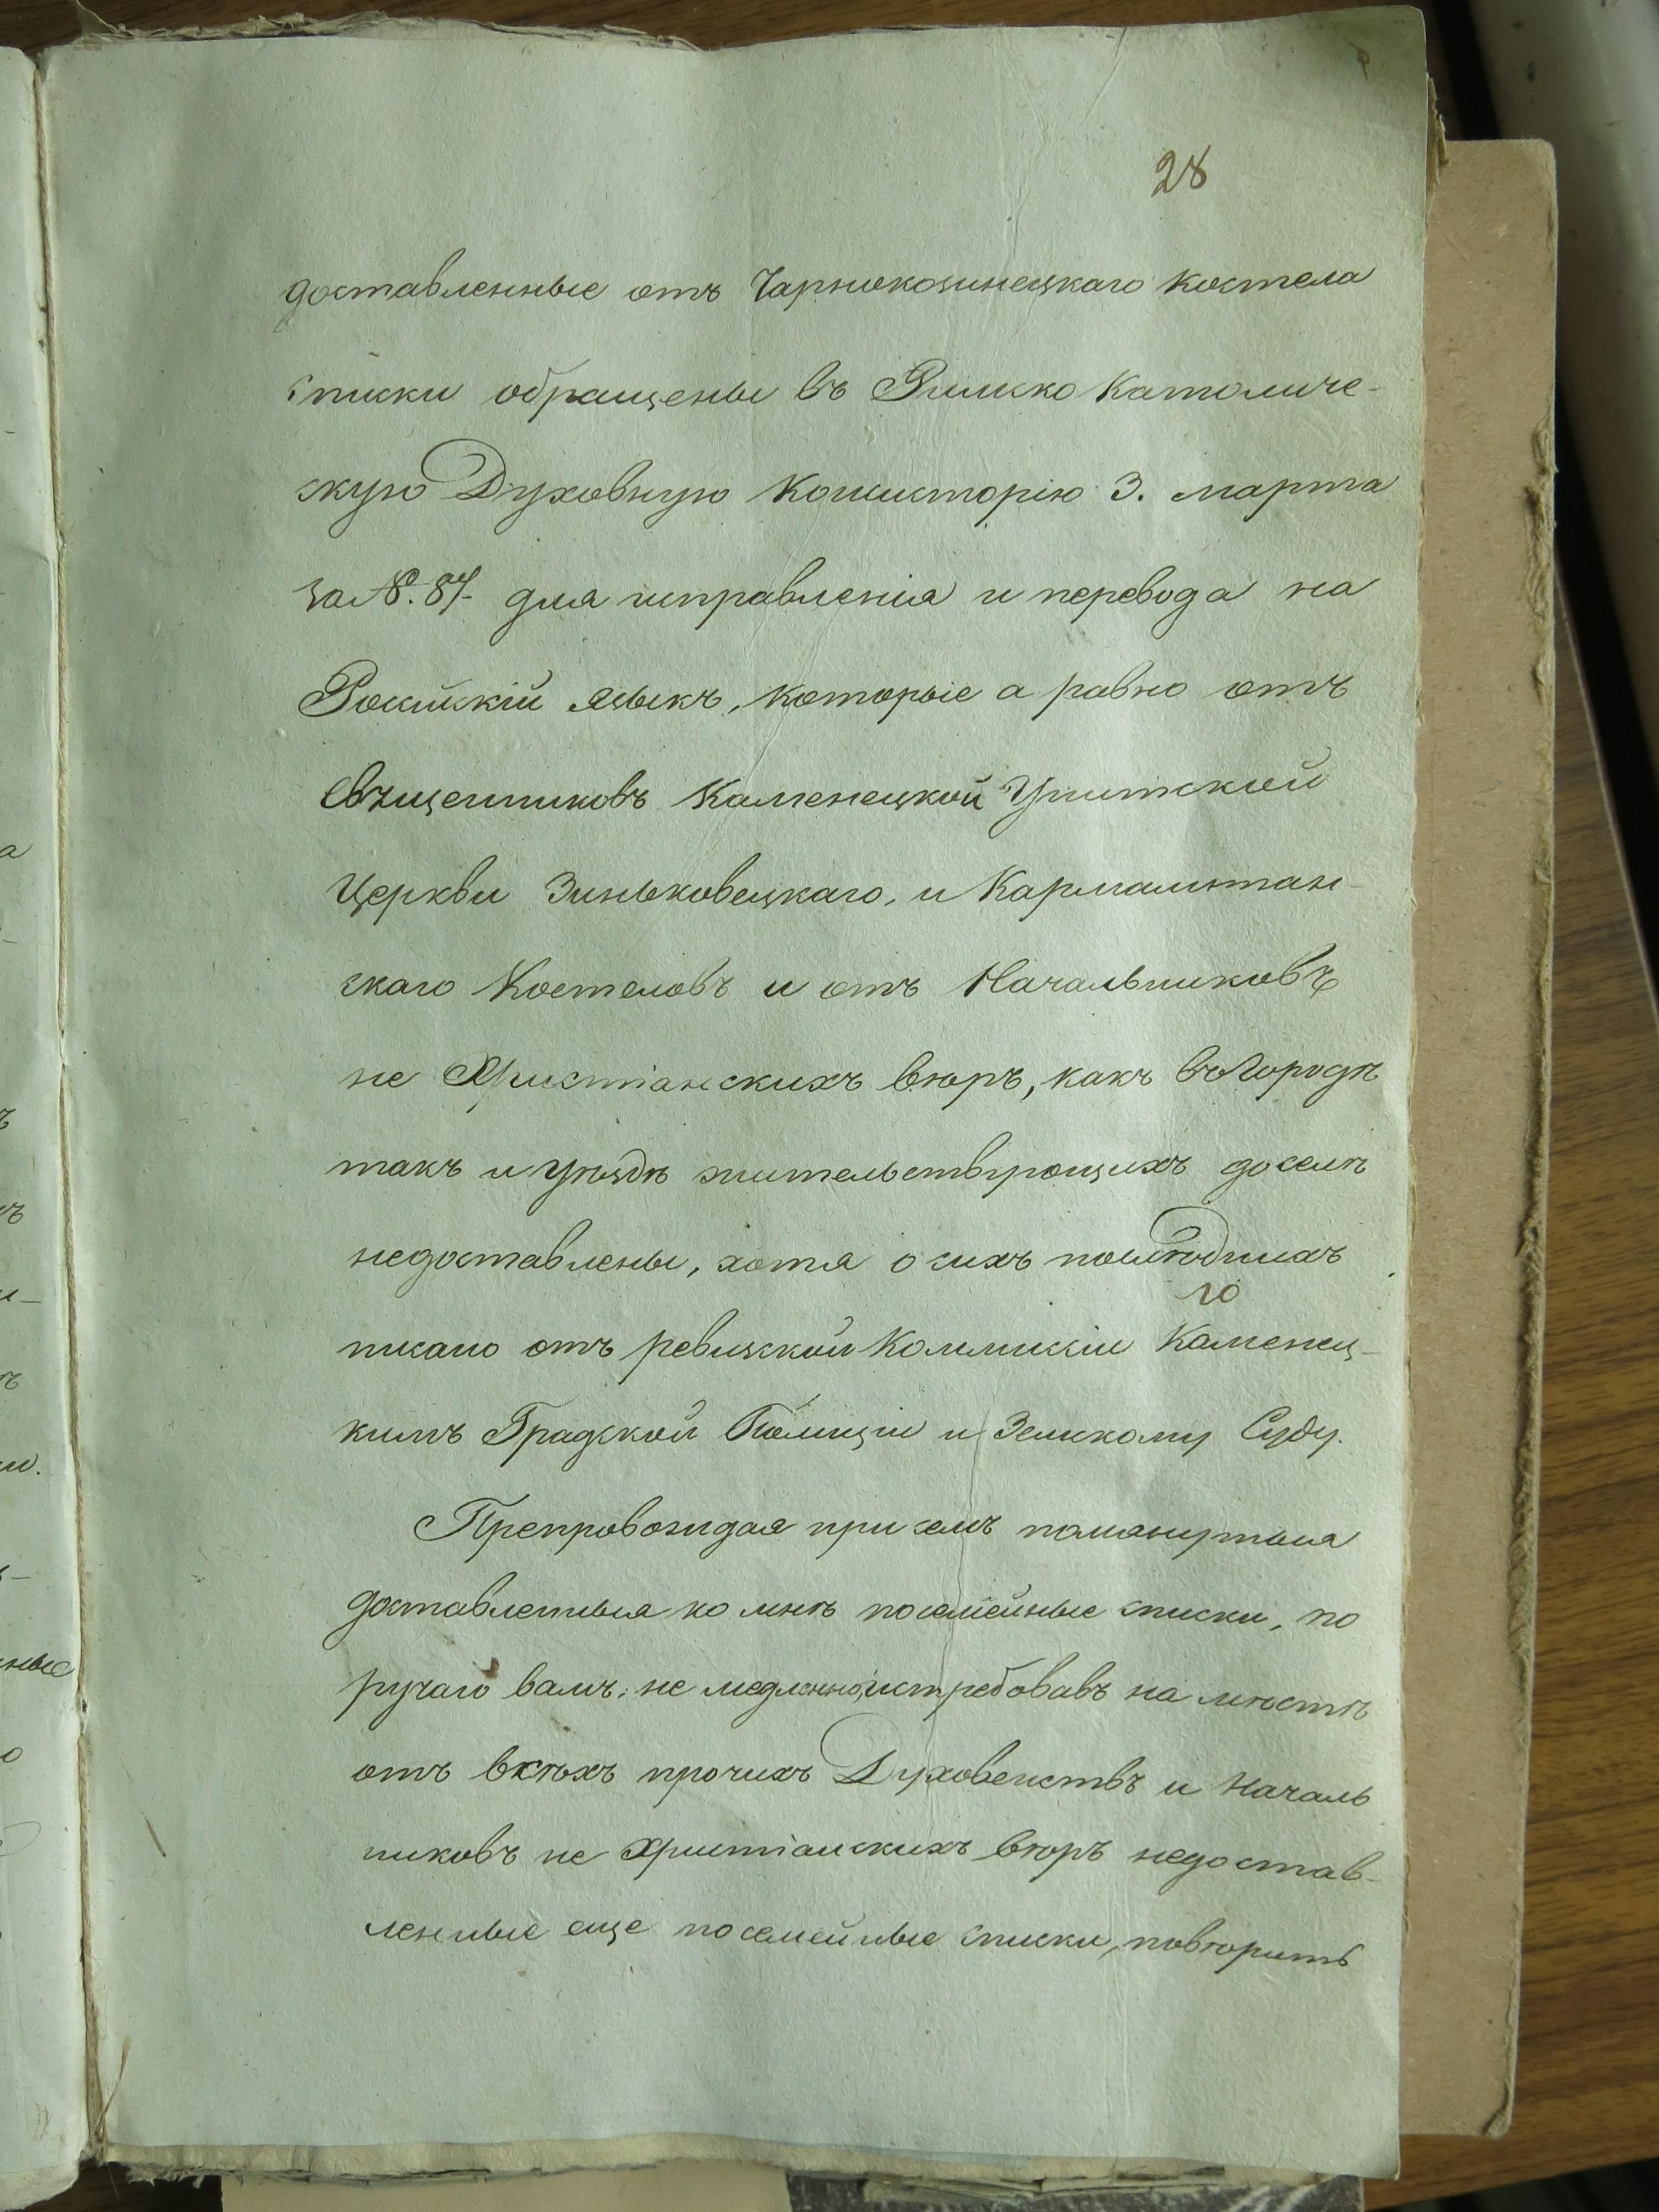 28
доставленные отъ Чарнокозинецкаго костела
списки обращены въ Римско Католиче-
скую Духовную Консисторію 3. марта
за №. 87. для исправленія и перевода на
Россійскій языкъ, которые а равно отъ
Священниковъ Каменецкой Унитской
Церкви Зиньковецкаго, и Кармалитан-
скаго Костеловъ и отъ Начальниковъ
не Христіанскихъ вѣръ, какъ въ Городѣ
такъ и Уѣздѣ жительствующихъ доселѣ
недоставлены, хотя о сихъ послѣднихъ
10
писано отъ ревизской Коммисіи Каменец-
кимъ Градской Полиціи и Земскому Суду.
Препровождая при семъ помянутыя
доставленныя ко мнѣ посемейные списки, по
ручаю вамъ: не медленно истребовавъ на мѣстѣ
отъ всѣхъ прочихъ Духовенствъ и Началь
никовъ не Христіанскихъ вѣръ недостав-
ленные еще посемейные списки, повѣрить